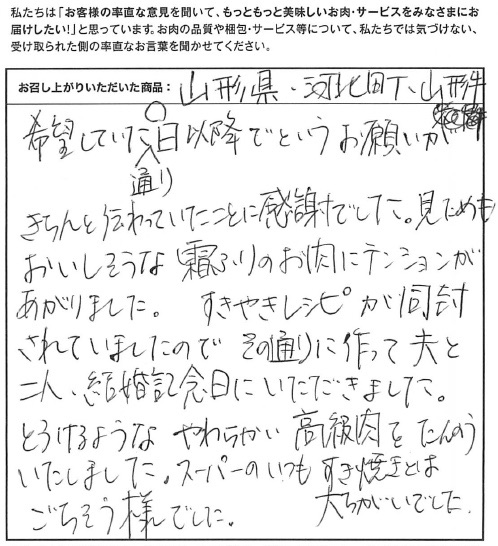 私たちは「お客様の率直な意見を聞いて、もっともっと美味しいお肉・サービスをみなさまにお
届けしたい!」と思っています。お肉の品質や梱包・サービス等について、私たちでは気づけない、
受け取られた側の率直なお言葉を聞かせてください。
お召し上がりいただいた商品： 山形県・河北町、山形牛
希望していた日以降でというお願いが
通り
きちんと伝わっていたことに感謝でした。見ためも
おいしそうな霜ふりのお肉にテンションが
あがりました。 すきやきレシピが同封
されていましたのでその通りに作って夫と
二人、結婚記念日にいただきました。
とろけるような やわらかい 高級肉をたんのう
いたしました。スーパーのいつもすき焼きとは
大ちがいでした
ごちそう様でした。